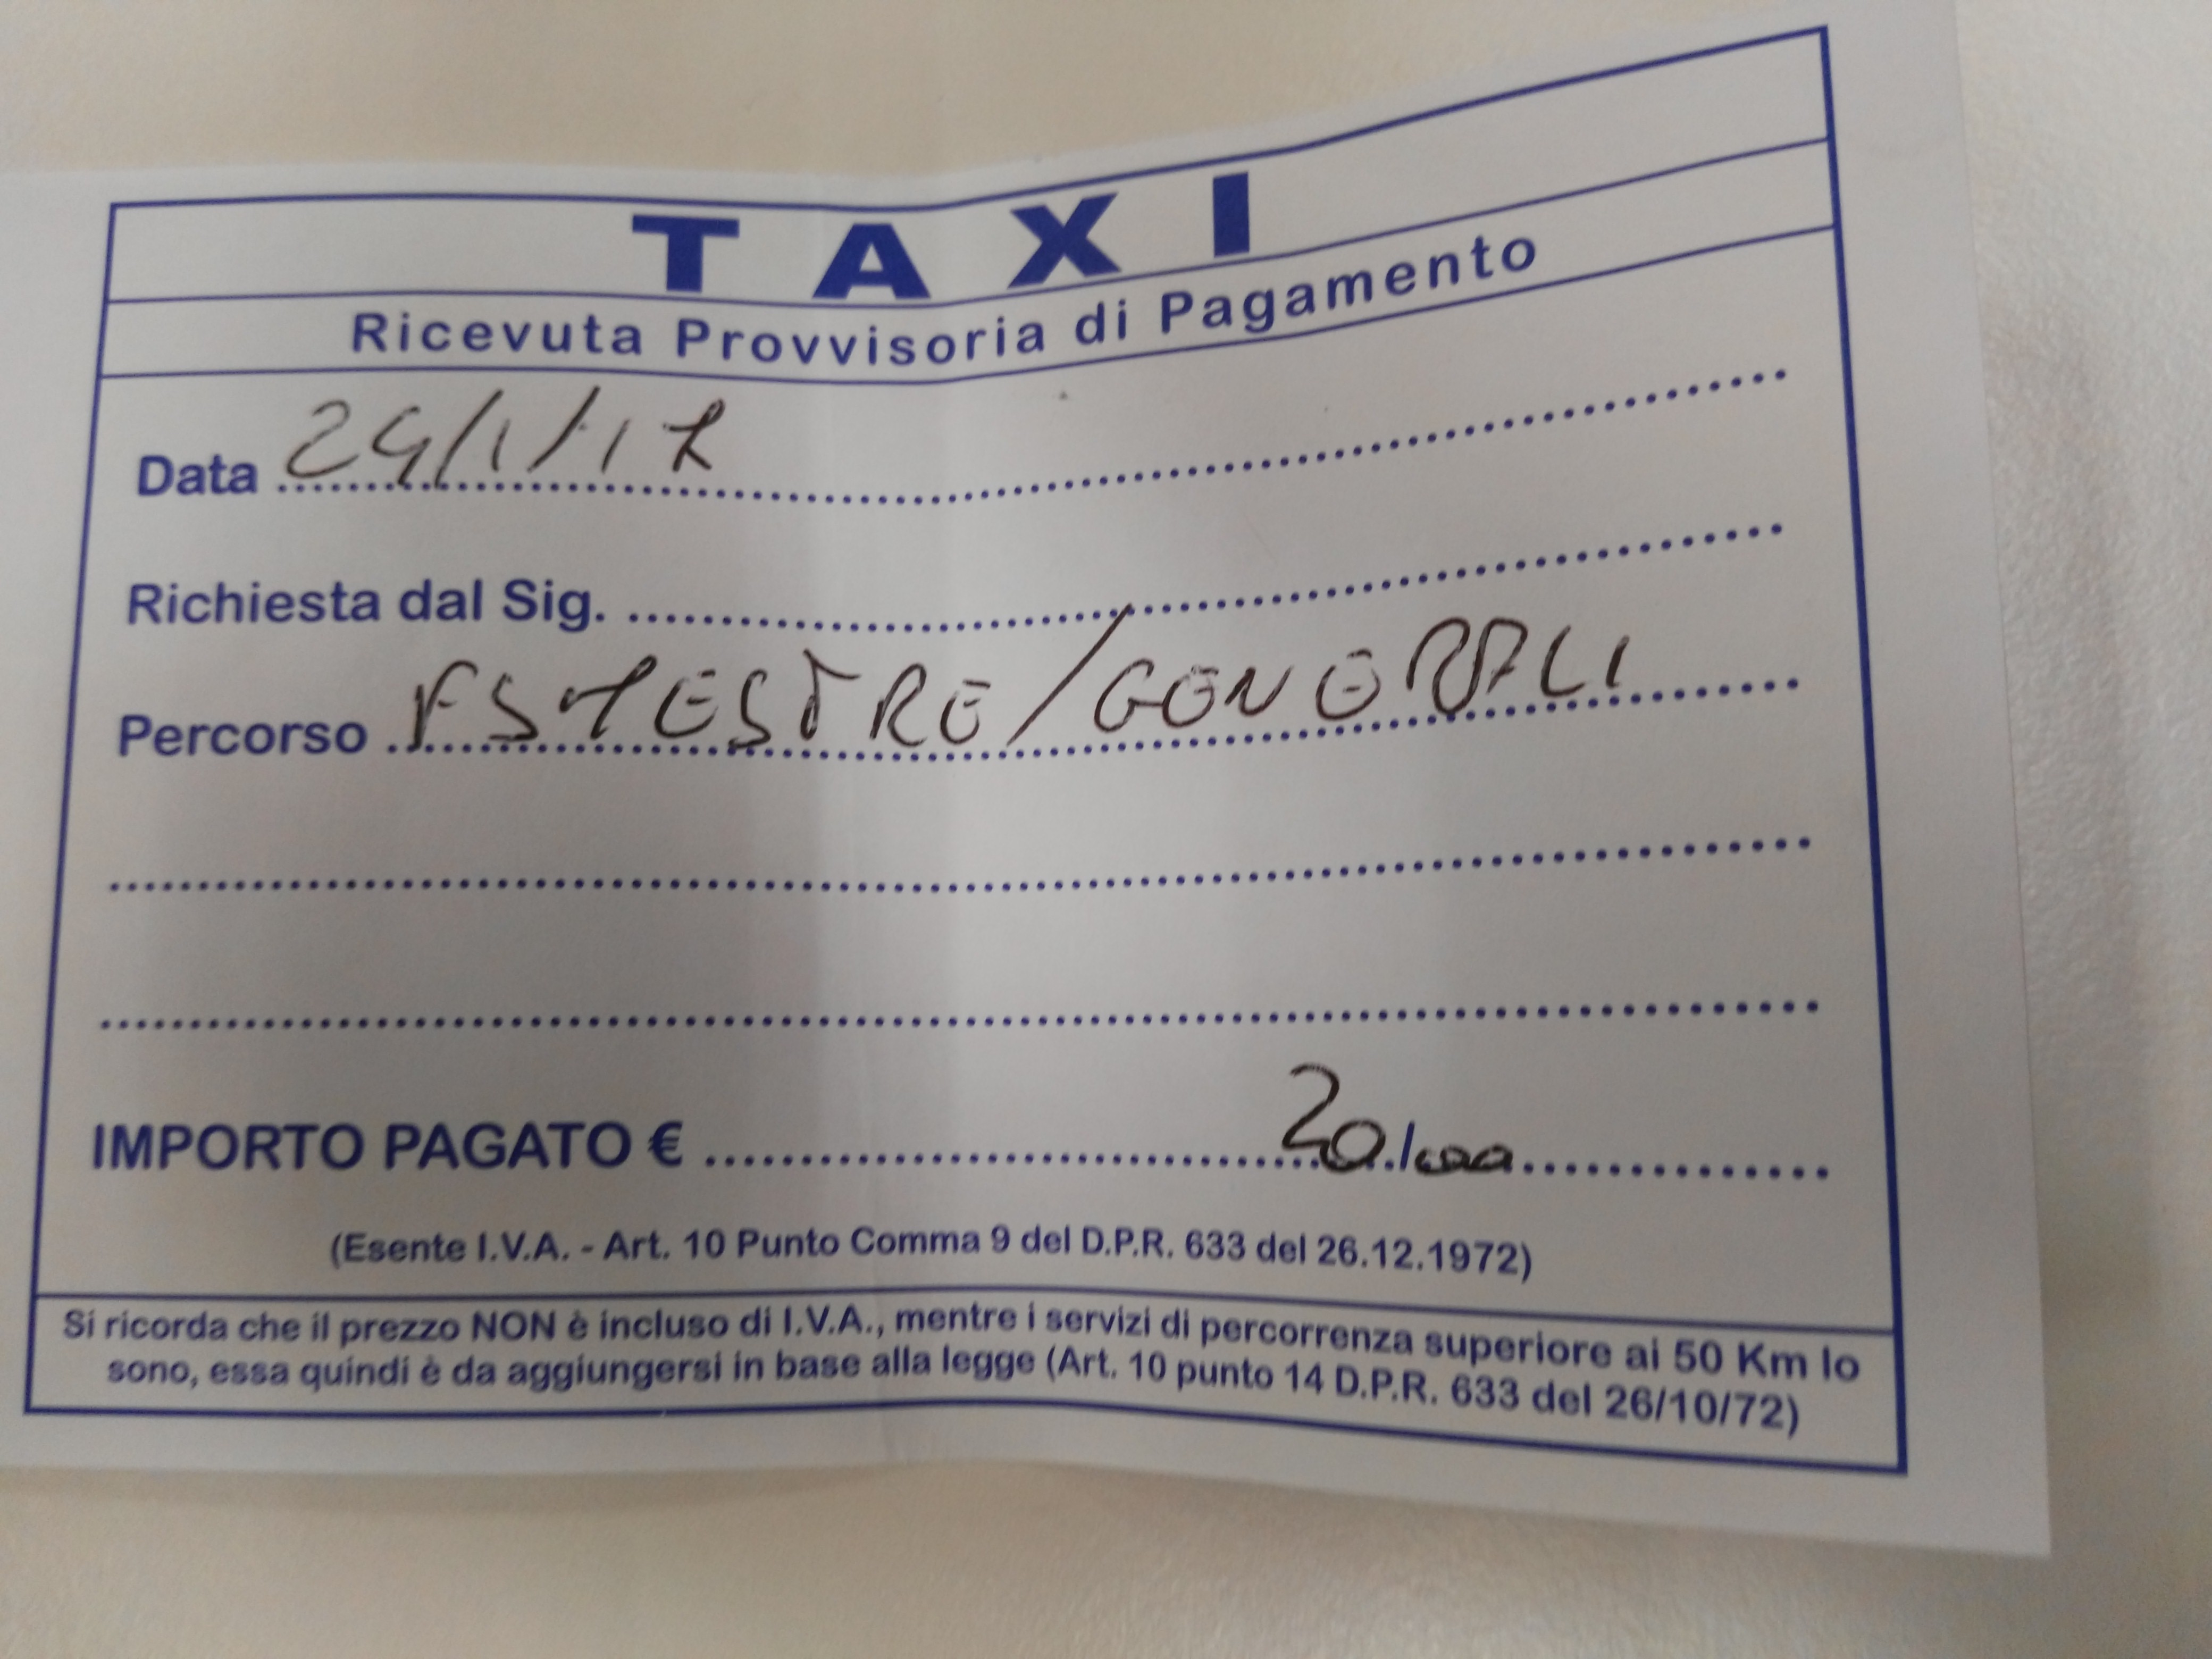 TAXI
Ricevuta Provvisoria di Pagamento
Data 24/1/17
Richiesta dal Sig.
Percorso FS MESTRE/GENERALI
IMPORTO PAGATO € 20,00
(Esente I.V.A. - Art. 10 Punto Comma 9 del D.P.R. 633 del 26.12.1972)
Si ricorda che il prezzo NON è incluso di I.V.A., mentre i servizi di percorrenza superiore ai 50 Km lo
sono, essa quindi è da aggiungersi in base alla legge (Art. 10 punto 14 D.P.R. 633 del 26/10/72)